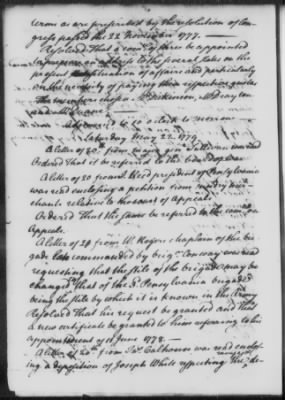 terms as are prescribed by the resolution of Con
gress passed the 22 November 1777.
Resolved That a com. of three be appointed
to prepare an address to the several states on the
present situation of affairs and particularly
on the necessity of paying their respective quotas
The members chosen Mr Dikinson, Mr Drayton
and Mr
Adjourned to 10 o Clock to morrow
Saturday May 22. 1779
A letter of 20th from major gen Sullivan was read
Ordered That it be referred to the board of war
A letter of 20 from J. Reed president of Pensylvania
was read enclosing a petition from sundry mer
chants relative to the court of Appeals.
Ordered That the same be referred to the com. on
Appeals.
A letter of 24 from W. Rogers chaplain of the bri
gade late commanded by brigr. Conway was read
requesting that the stile of the brigade may be
changed to that of the 3d. Pensylvania brigade
being the stile by which it is known in the Army
Resolved That his request be granted and that
a new certificate be granted to him referring to his
appointment of 1st June 1778.
A letter of 20th from Jas. Calhoun was read enclo
sing a deposition of Joseph White respecting the de